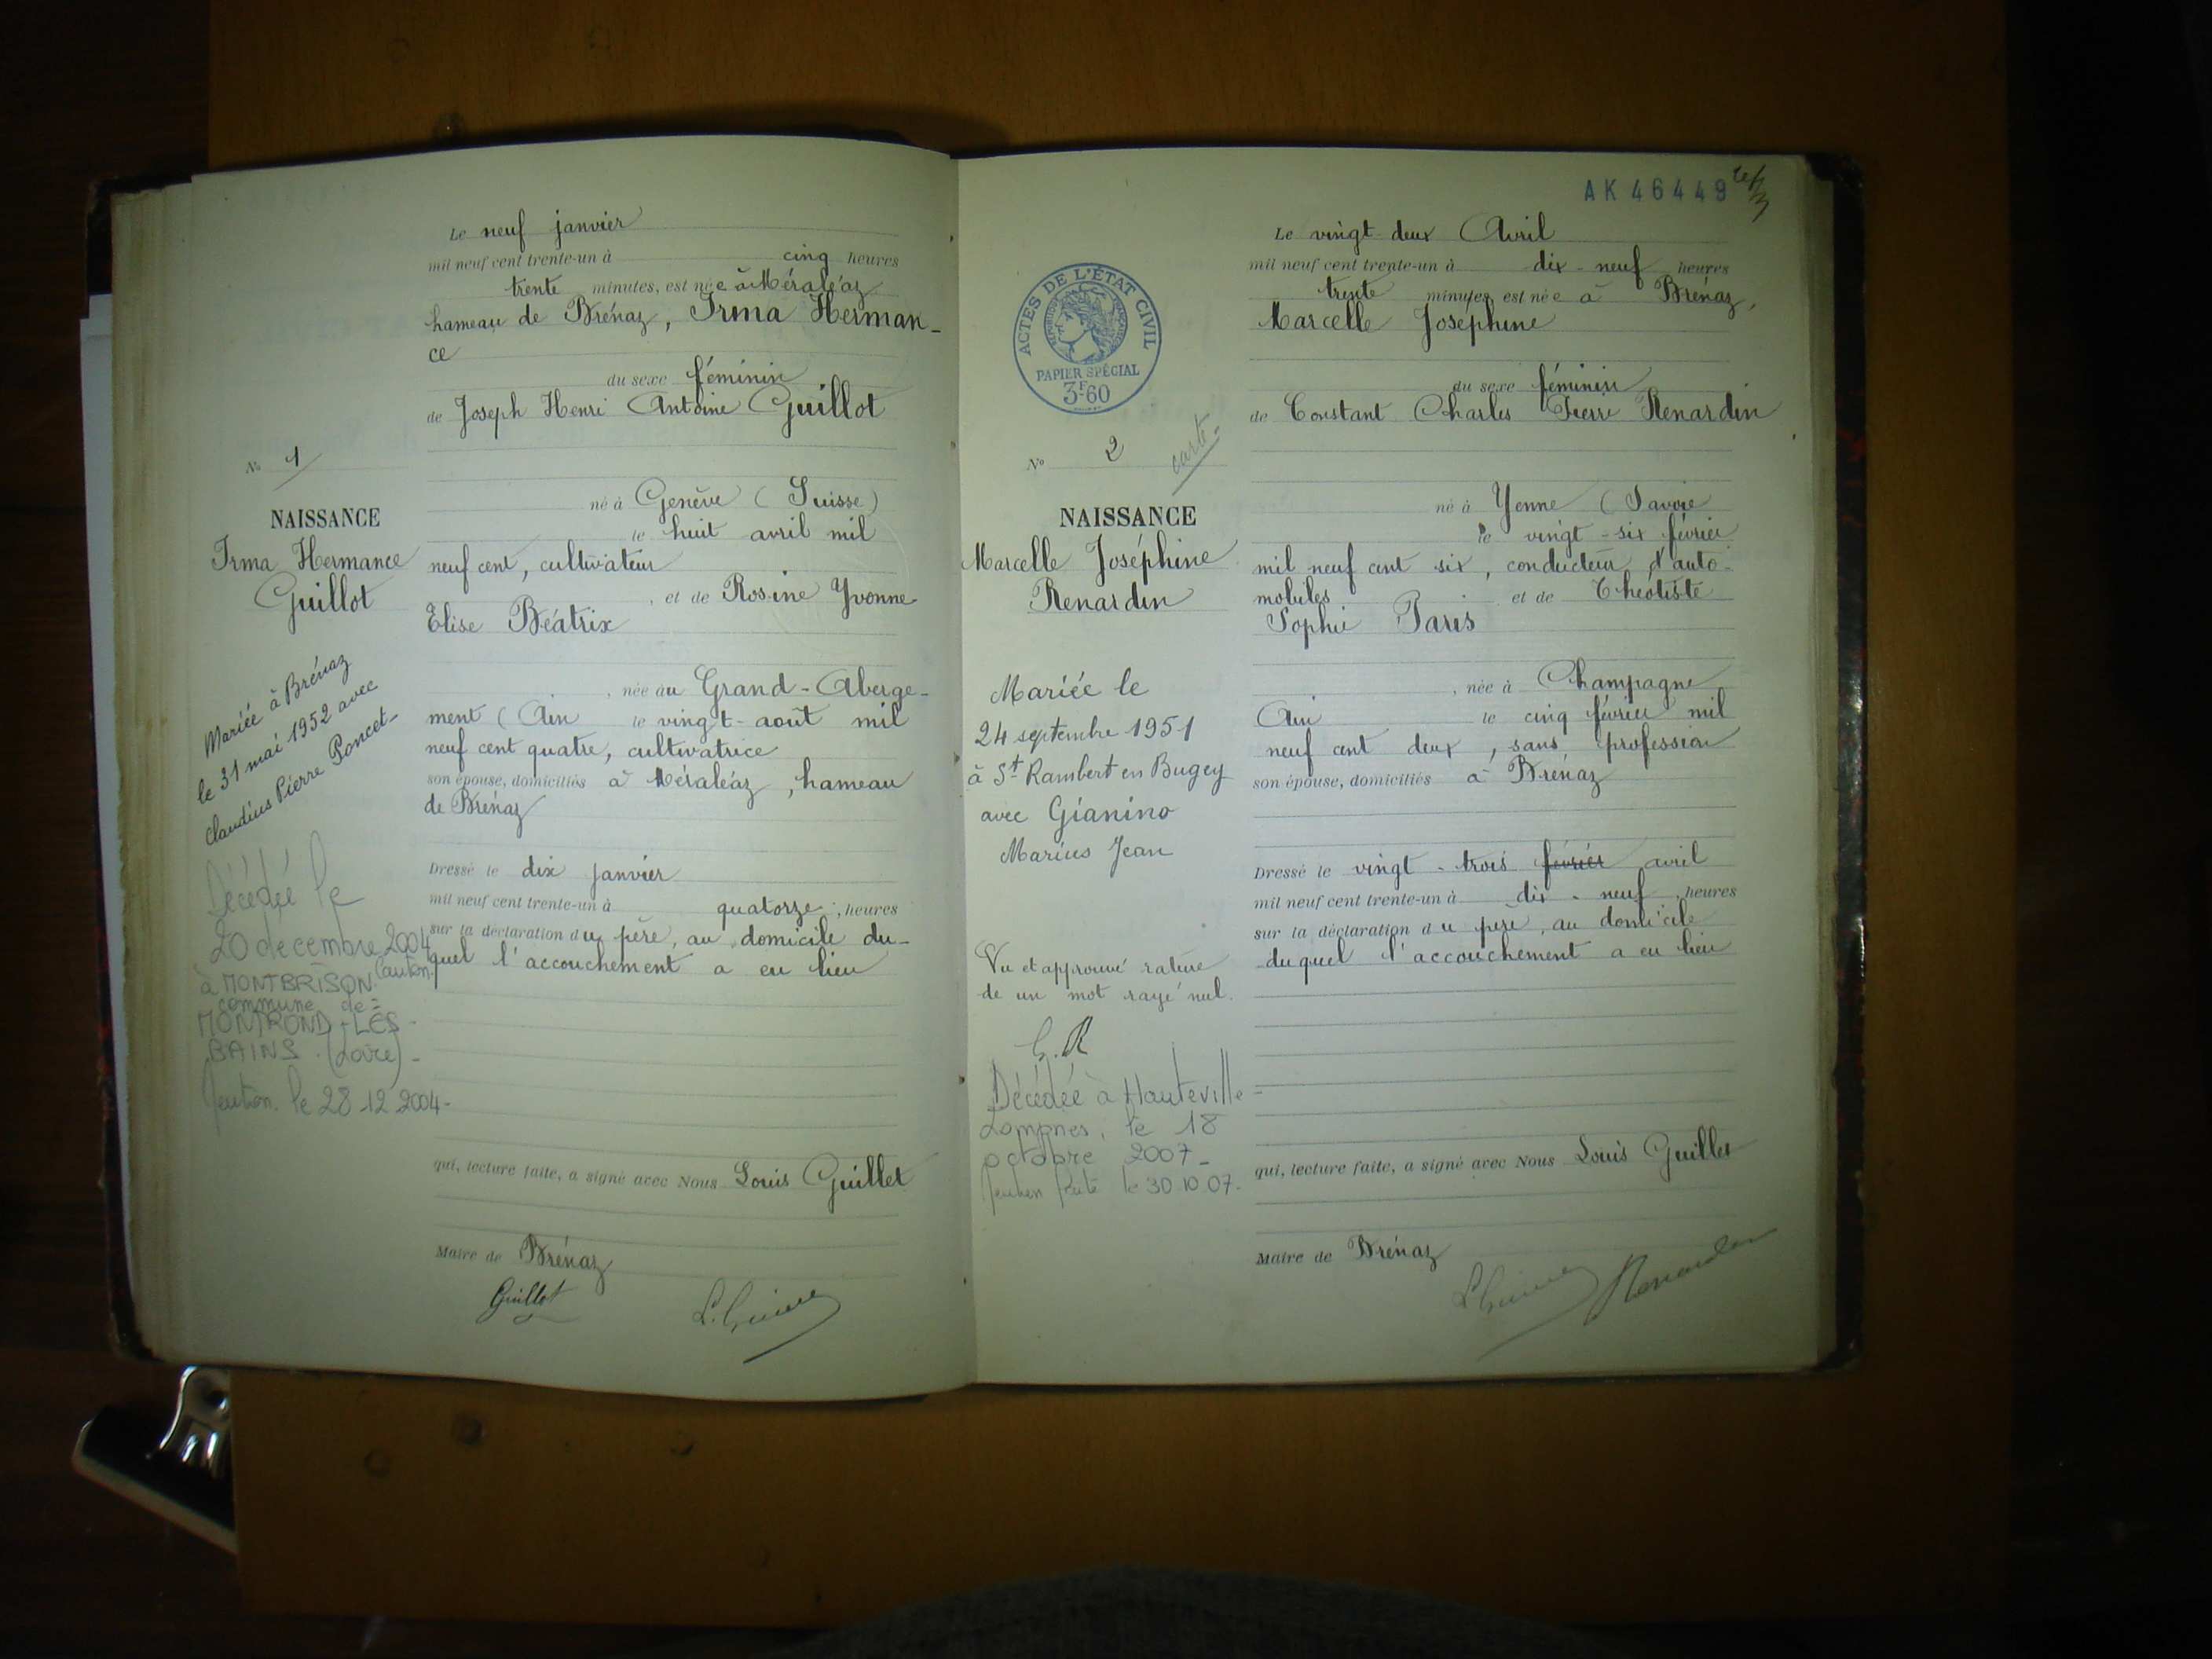 Le neuf janvier
mil neuf cent trente-un à cinq heures
trente minutes, est née à Méraléaz
hameau de Brénaz, Irma Herman-
ce
du sexe féminin
de Joseph Henri Antoine Guillot
né à Genève (Suisse)
le huit avril mil
neuf cent, cultivateur
, et de Rosine Yvonne
Elise Béatrix
, née au Grand-Aberge-
ment (Ain le vingt-août mil
neuf cent quatre, cultivatrice
son épouse, domiciliés à Méraléaz, hameau
de Brénaz
Dressé le dix janvier
mil neuf cent trente-un à quatorze, heures
sur la déclaration du père, au domicile du-
quel l'accouchement a eu lieu
qui, lecture faite, a signé avec Nous Louis Guillet
Maire de Brénaz
Guillot
No 1
NAISSANCE
Irma Hermance
Guillot
Mariée à Brénaz
le 31 mai 1952 avec
Claudius Pierre Poncet-
Décédée le
20 décembre 2004
à MONTBRISON
commune de
MONTROND-LES-
BAINS (Loire)-
Mention le 28 12 2004-
AK 46449
ACTES DE L'ÉTAT CIVIL
PAPIER SPÉCIAL
3F60
No 2
carte-
NAISSANCE
Marcelle Joséphine
Renardin
Mariée le
24 septembre 1951
à St Rambert en Bugey
avec Gianino
Marius Jean
Vu et approuvé rature
de un mot rayé nul.
Décédée à Hauteville-
Lompnes, le 18
octobre 2007-
Mention faite le 30.10.07.
Le vingt deux Avril
mil neuf cent trente-un à dix-neuf heures
trente minutes, est née à Brénaz,
Marcelle Joséphine
du sexe féminin
de Constant Charles Pierre Renardin
né à Yenne (Savoie
le vingt-six février
mil neuf cent six, conducteur d'auto-
mobiles et de Théotiste
Sophie Paris
, née à Champagne
Ain le cinq février mil
neuf cent deux, sans profession
son épouse, domiciliés à Brénaz
Dressé le vingt-trois février avril
mil neuf cent trente-un à dix-neuf, heures
sur la déclaration du père, au domicile
duquel l'accouchement a eu lieu
qui, lecture faite, a signé avec Nous Louis Guillet
Maire de Brénaz
Renardin